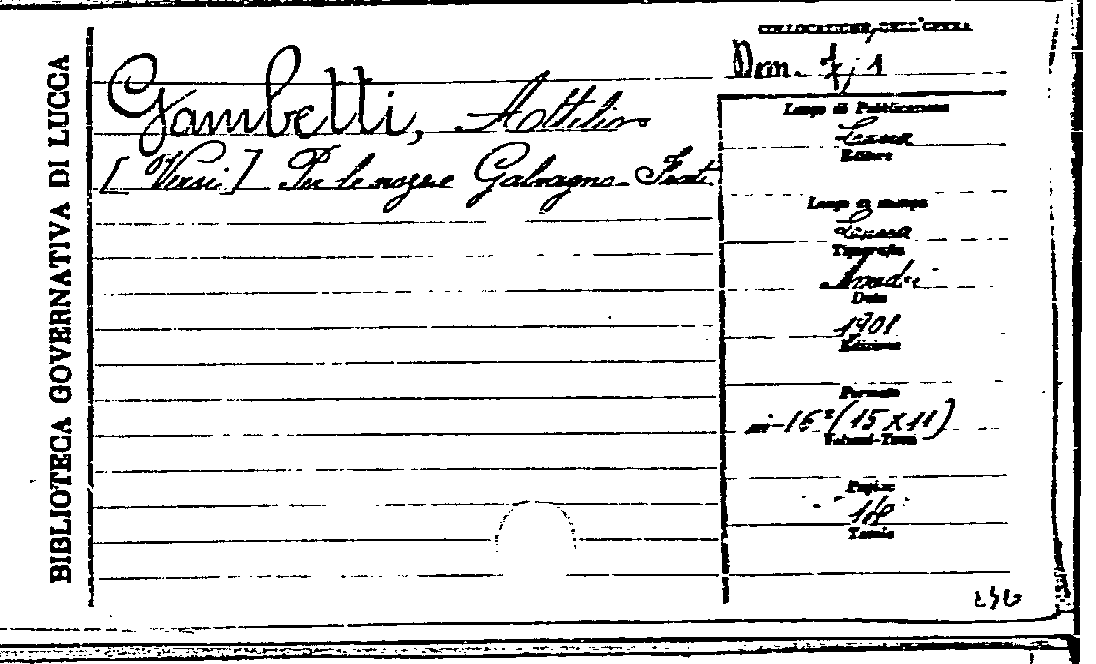 BIBLIOTECA GOVERNATIVA DI LUCCA
COLLOCAZIONE DELL'OPERA
Dom. 7, 1
Gambetti, Attilio
[Versi] Per le nozze Galvagno-Frat
Luogo di Pubblicazione
Editore
Luogo di stampa
Tipografia
Amedei
Data
1901
Edizione
Formato
in-16º (15 x 11)
Volumi-Tomi
Pagine
Tavole